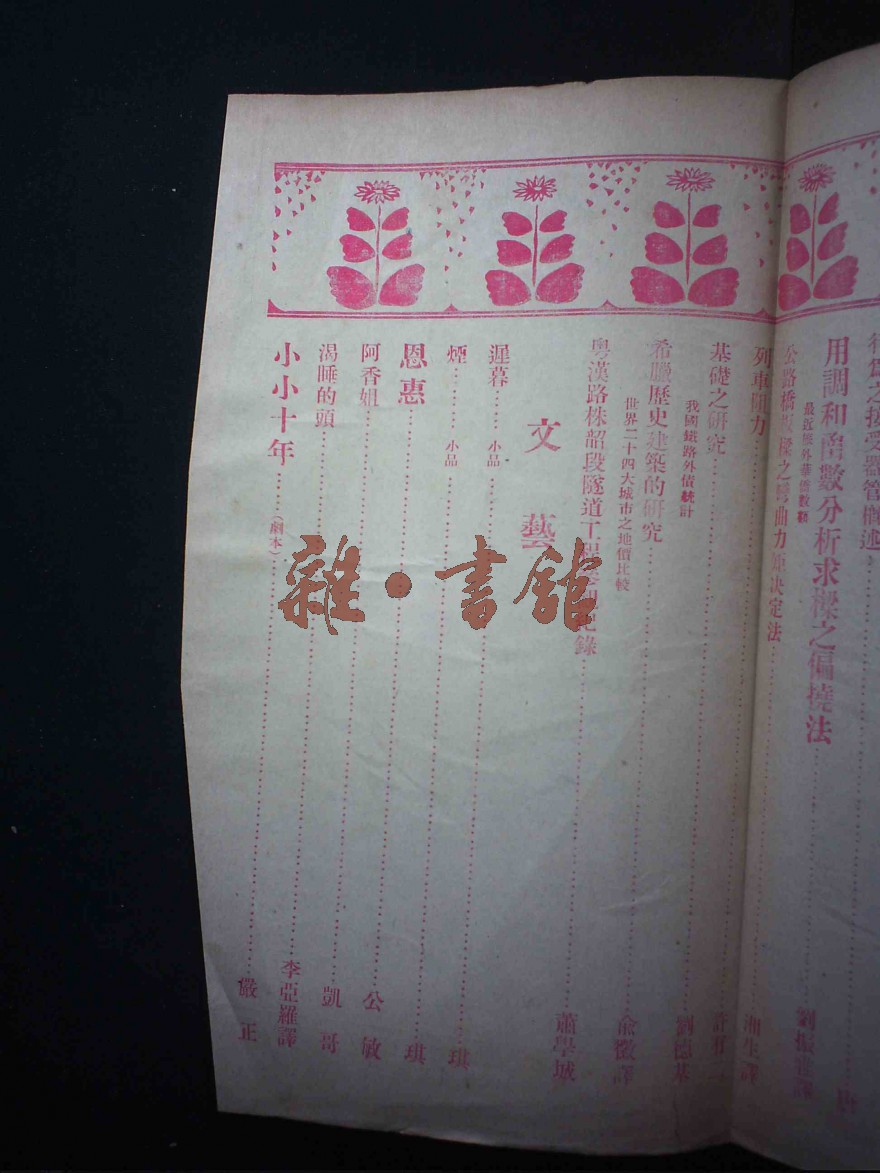 之接受器官概述
用調和函數分析求樑之偏撓法……劉振譯
最近外華僑數額
公路橋樑之彎曲力矩决定法……湘生譯
列車阻力……許
基礎之研究……劉德基
我國鐵路外債統計
希臘歷史建築的研究……俞徵譯
世界二十四大城市之地價比較
粵漢路株韶段隧道工程紀錄……蕭學城
文藝
遲暮……小品……琪
煙……小品……琪
恩惠……公敏
阿香姐……凱哥
渴睡的頭……李亞羅譯
小小十年……(劇本)……嚴正
雜·書館